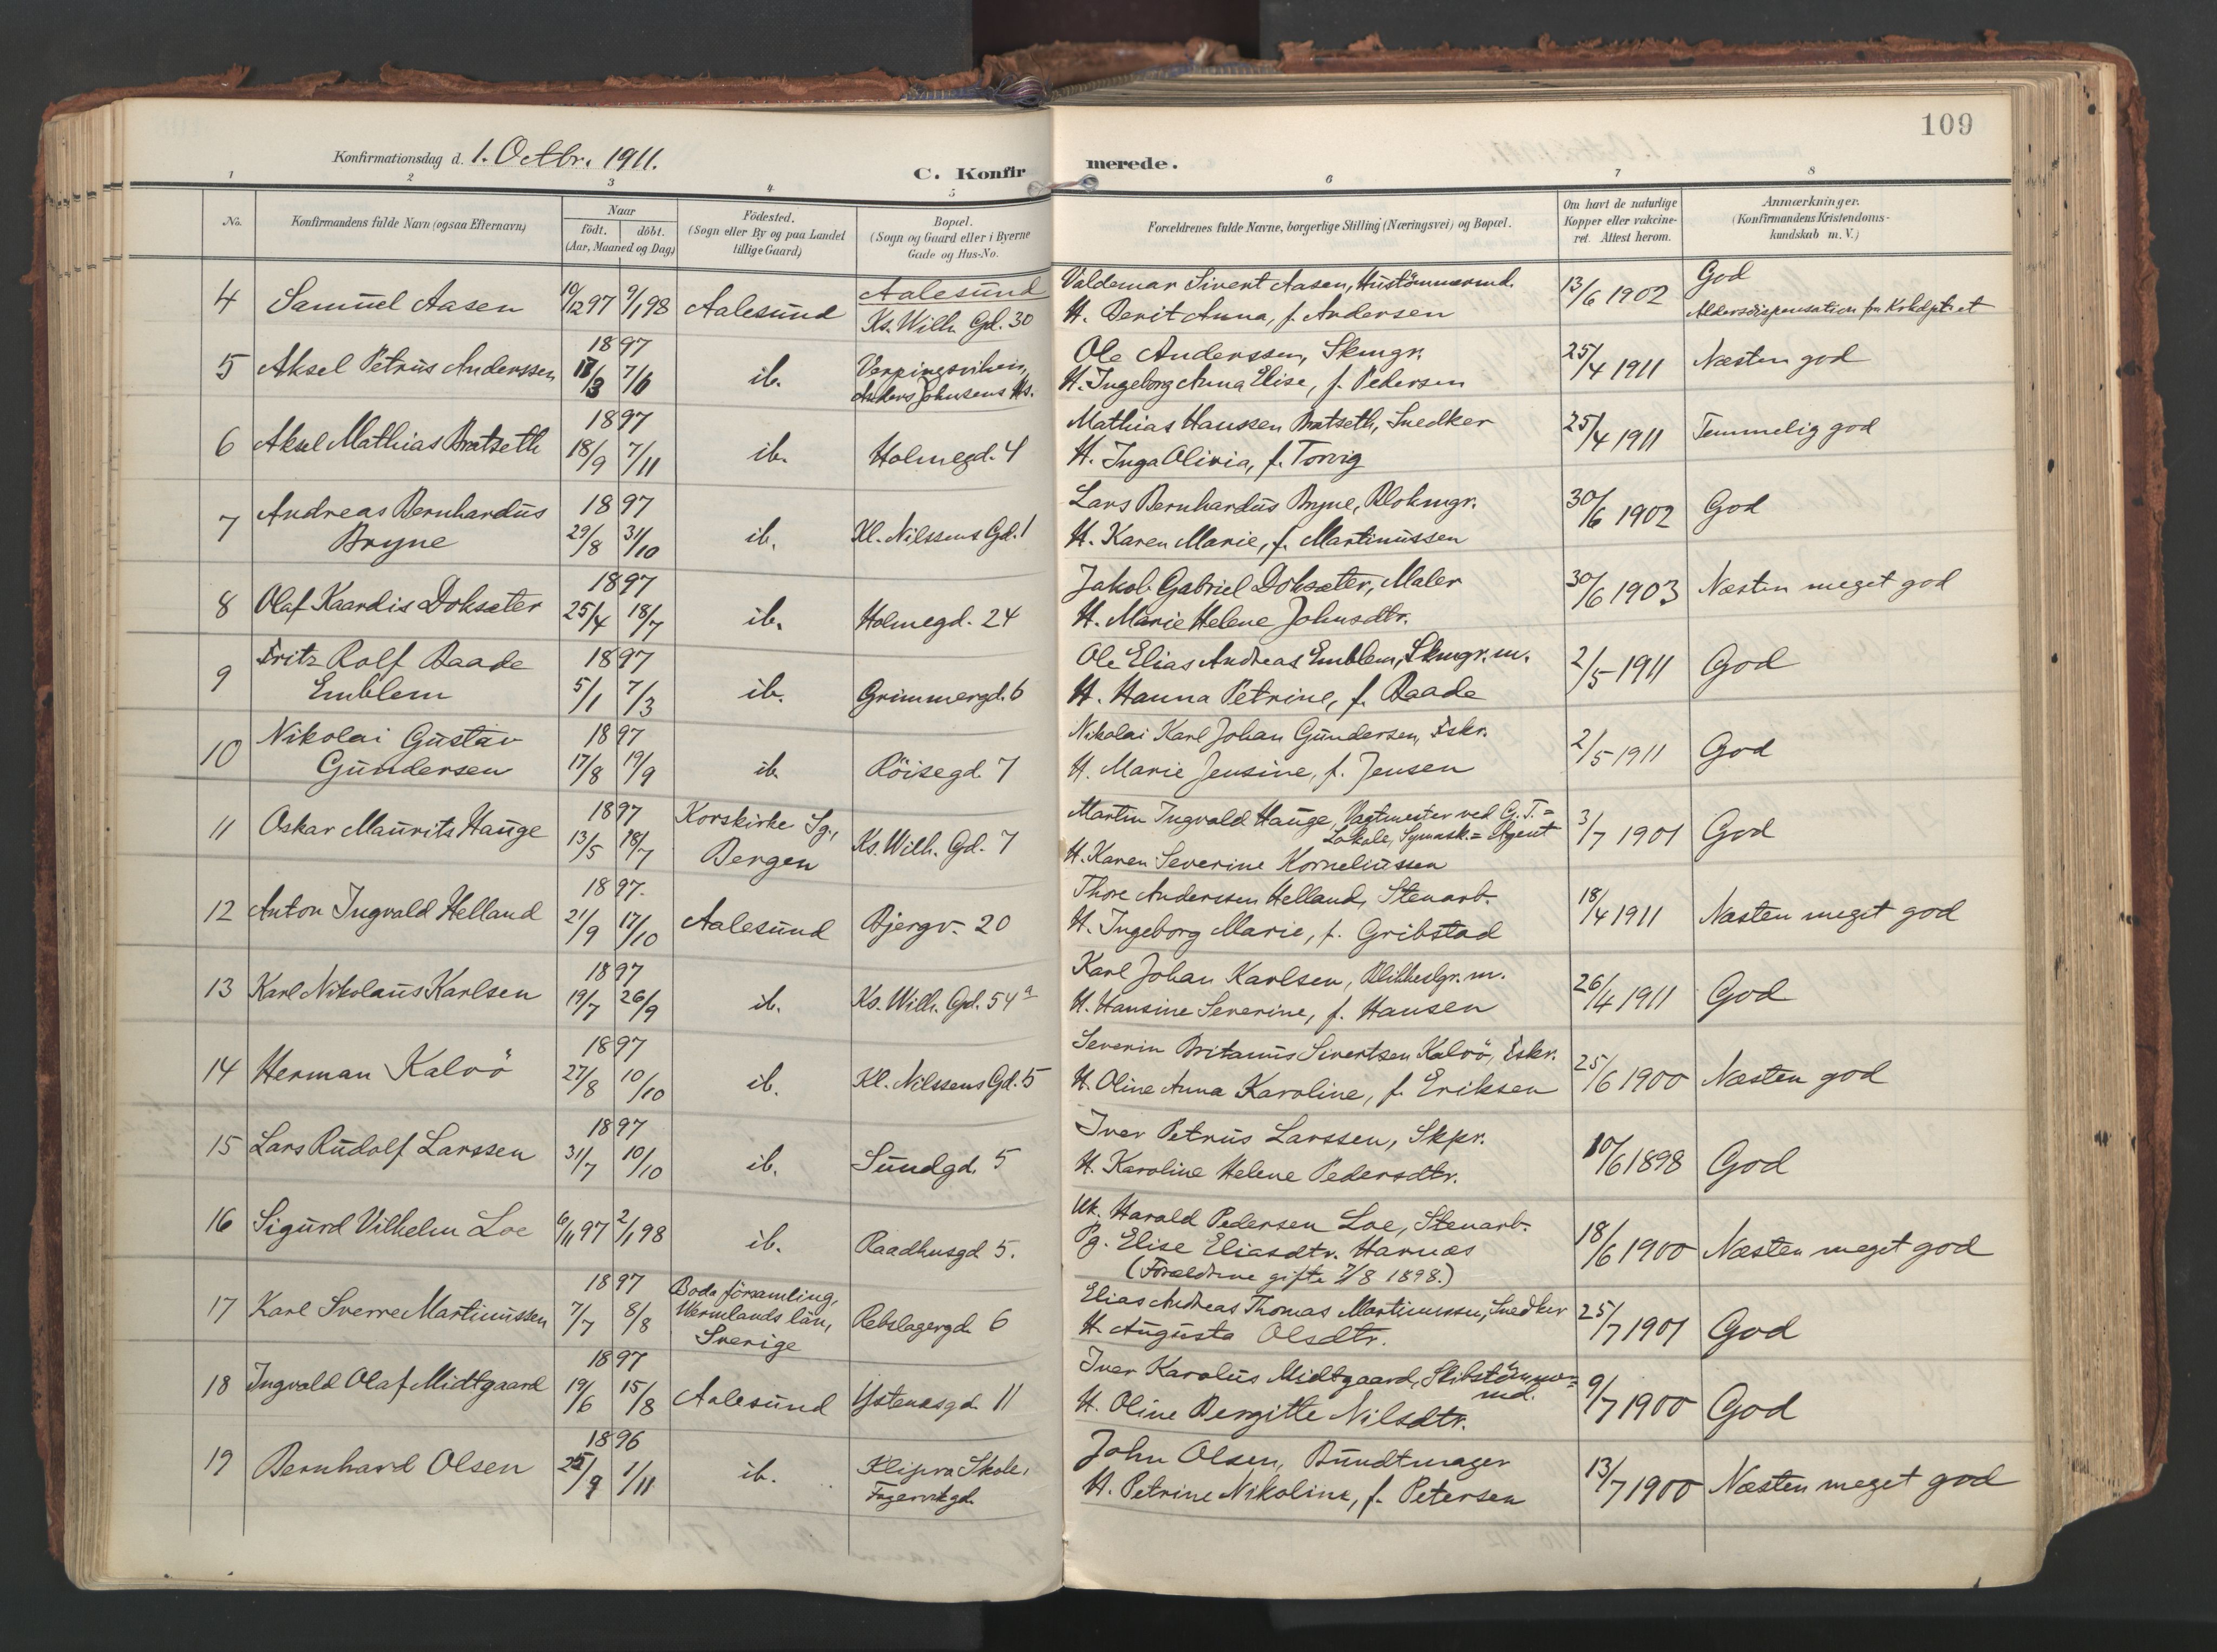 109
Konfirmationsdag d. 1. Octbr. 1911.
C. Konfirmerede.
1 2 3 4 5 6 7 8
No.
Konfirmandens fulde Navn (ogsaa Efternavn)
Naar
födt. döbt.
(Aar, Maaned og Dag)
Födested.
(Sogn eller By og paa Landet
tillige Gaard)
Bopæl.
(Sogn og Gaard eller i Byerne
Gade og Hus-No.
Forældrenes fulde Navne, borgerlige Stilling (Næringsvei) og Bopæl.
Om havt de naturlige
Kopper eller vakcine-
ret. Attest herom.
Anmærkninger.
(Konfirmandens Kristendoms-
kundskab m. V.)
4 Samuel Aasen 10/12 97 9/1 98 Aalesund Aalesund
Ks. Wilh. Gd. 30
Valdemar Sivert Aasen, Hustömmermd.
H. Berit Anna, f. Andersen
13/6 1902 God
Aldersdispensation fra
5 Aksel Petrus Anderssen 1897
18/3 7/6 ib. Verpingsviken,
Anders Johnsens Hs.
Ole Anderssen, Skmgr.
H. Ingeborg Anna Elise, f. Pedersen
25/4 1911 Næsten god
6 Aksel Mathias Bratseth 1897
18/9 7/11 ib. Holmegd. 4
Mathias Hanssen Bratseth, Snedker
H. Inga Olivia, f. Torvig
25/4 1911 Temmelig god
7 Andreas Bernhardus
Bryne
1897
29/8 31/10 ib. Kl. Nilssens Gd. 1
Lars Bernhardus Bryne, Blokmgr.
H. Karen Marie, f. Martinussen
30/6 1902 God
8 Olaf Kaardis Doksæter 1897
25/4 18/7 ib. Holmegd. 24
Jakob Gabriel Doksæter, Maler
H. Marie Helene Johnsdtr.
30/6 1903 Næsten meget god
9 Fritz Rolf Raade
Emblem
1897
5/1 7/3 ib. Grimmergd. 6
Ole Elias Andreas Emblem, Skmgr. m.
H. Hanna Petrine, f. Raade
2/5 1911 God
10 Nikolai Gustav
Gundersen
1897
17/8 19/9 ib. Röisegd. 7
Nikolai Karl Johan Gundersen, Fskr.
H. Marie Jensine, f. Jensen
2/5 1911 God
11 Oskar Maurits Hauge 1897
13/5 18/7 Korskirke Sg.,
Bergen
Ks. Wilh. Gd. 7
Martin Ingvald Hauge, Vagtmester ved G. T.=
Lokale, Symask.= Agent
H. Karen Severine Korneliussen
3/7 1901 God
12 Anton Ingvald Helland 1897.
21/9 17/10 Aalesund Bjergv. 20
Thore Anderssen Helland, Stenarb.
H. Ingeborg Marie, f. Gribstad
18/4 1911 Næsten meget god
13 Karl Nikolaus Karlsen 1897
19/7 26/9 ib. Ks. Wilh. Gd. 54a
Karl Johan Karlsen, Blikkeslgr. m.
H. Hansine Severine, f. Hansen
26/4 1911 God
14 Herman Kalvö 1897
27/8 10/10 ib. Kl. Nilssens Gd. 5
Severin Britanus Sivertsen Kalvö, Fskr.
H. Oline Anna Karoline, f. Eriksen
25/6 1900 Næsten god
15 Lars Rudolf Larssen 1897
31/7 10/10 ib. Sundgd. 5
Iver Petrus Larssen, Skpr.
H. Karoline Helene Pedersdtr.
10/6 1898 God
16 Sigurd Vilhelm Loe 6/11 97 2/1 98 ib. Raadhusgd 5.
Uk. Harald Pedersen Loe, Stenarb.
Pg. Elise Eliasdtr. Harnæs
(Forældrene gifte 7/8 1898.)
18/6 1900 Næsten meget god
17 Karl Sverre Martinussen 1897
7/7 8/8 Boda församling,
Wermlands län,
Sverige
Rebslagergd. 6
Elias Andreas Thomas Martinussen, Snedker
H. Augusta Olsdtr.
25/7 1901 God
18 Ingvald Olaf Midtgaard 1897
19/6 15/8 Aalesund Ystenæsgd. 11
Iver Karolus Midtgaard, Skibstömmer=
md.
H. Oline Bergitte Nilsdtr.
9/7 1900 God
19 Bernhard Olsen 1896
25/9 1/11 ib. Klipra Skole,
Fagervikgd.
John Olsen, Bundtmager
H. Petrine Nikoline, f. Petersen
13/7 1900 Næsten meget god